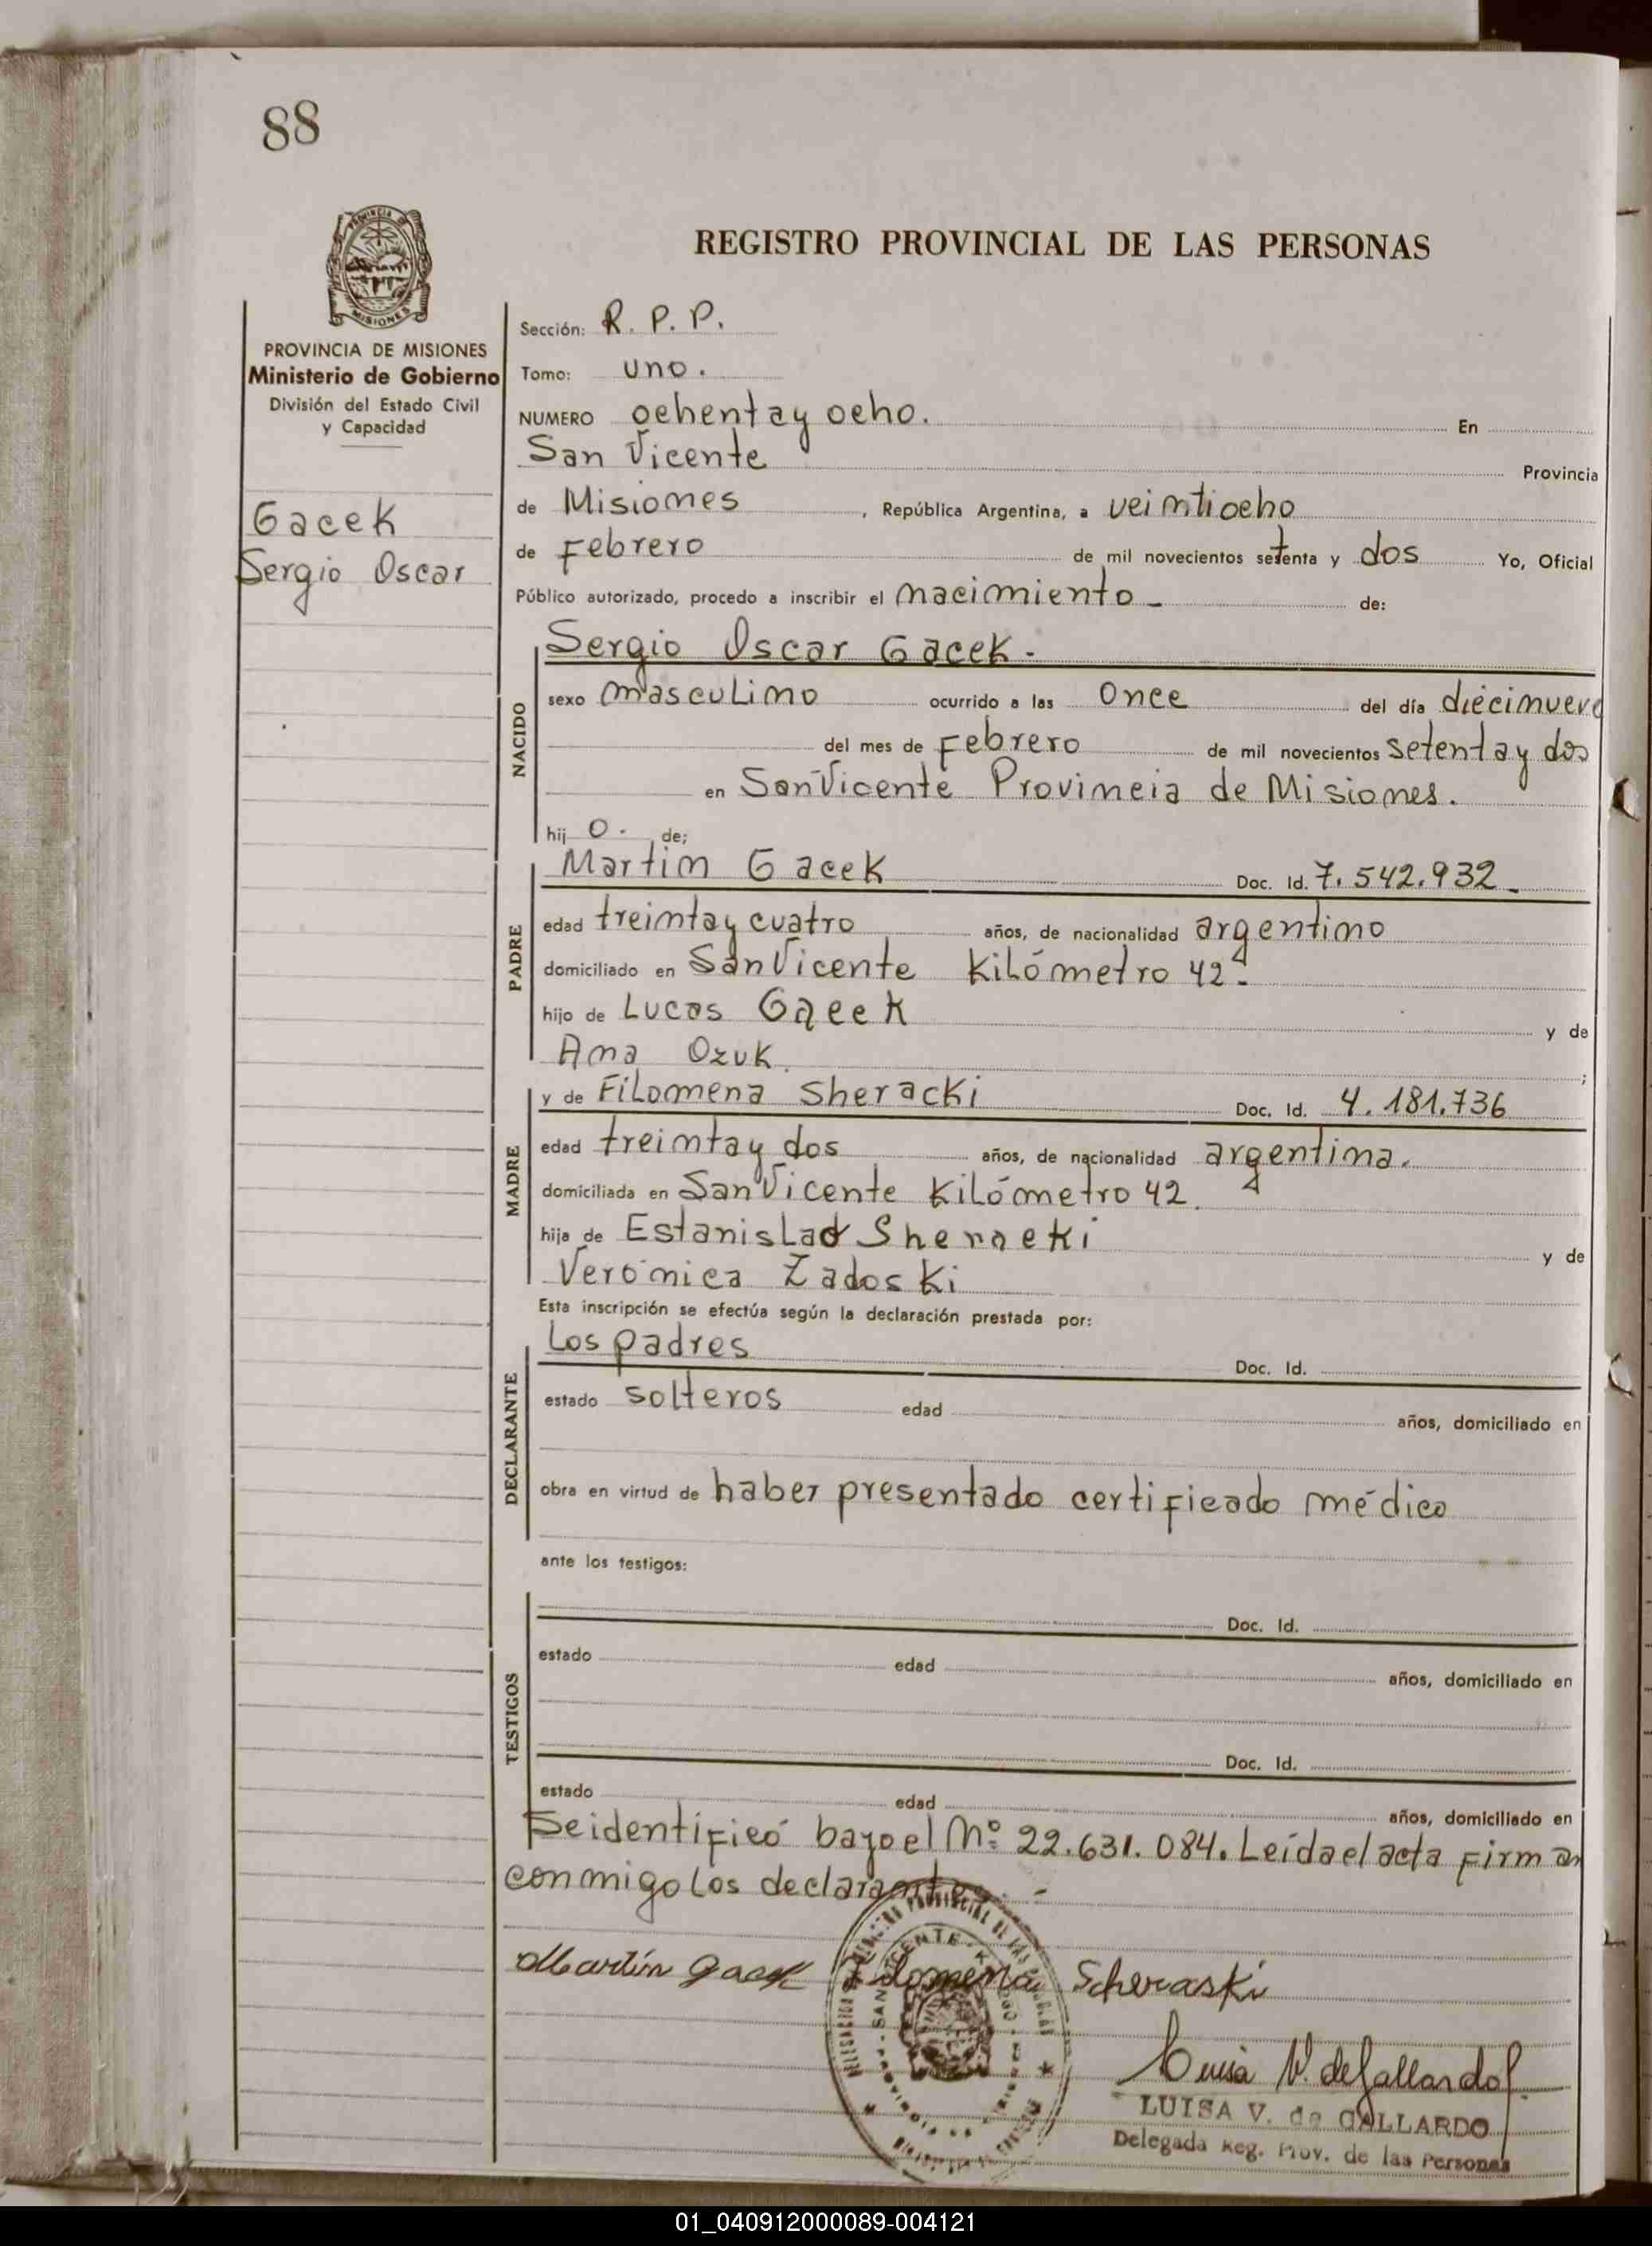 88
REGISTRO PROVINCIAL DE LAS PERSONAS
MISIONES
PROVINCIA DE MISIONES
Ministerio de Gobierno
División del Estado Civil
y Capacidad
Gacek
Sergio Oscar
Sección: R. P. P.
Tomo: uno.
NUMERO ochenta y ocho. En
San Vicente Provincia
de Misiones, República Argentina, a veintiocho
de Febrero de mil novecientos setenta y dos Yo, Oficial
Público autorizado, procedo a inscribir el nacimiento - de:
NACIDO
Sergio Oscar Gacek -
sexo masculino ocurrido a las Once del día diecinueve
del mes de Febrero de mil novecientos setenta y dos
en San Vicente Provincia de Misiones.
hij o. de;
PADRE
Martin Gacek Doc. Id. 7.542.932 -
edad treinta y cuatro años, de nacionalidad argentino
domiciliado en San Vicente Kilómetro 42 -
hijo de Lucas Gacek y de
Ana Ozuk. ;
MADRE
y de Filomena Sheracki Doc. Id. 4.181.736
edad treinta y dos años, de nacionalidad argentina.
domiciliada en San Vicente Kilómetro 42.
hija de Estanislao Sheracki y de
Verónica Zadoski
Esta inscripción se efectúa según la declaración prestada por:
DECLARANTE
Los padres Doc. Id.
estado solteros edad años, domiciliado en
obra en virtud de haber presentado certificado médico
ante los testigos:
TESTIGOS
Doc. Id.
estado edad años, domiciliado en
Doc. Id.
estado edad años, domiciliado en
Se identificó bajo el Nº 22.631.084. Leída el acta firman
conmigo los declarantes. -
Martín Gacek Filomena Scheraski
SAN VICENTE
Luisa V. de Gallardo
LUISA V. de GALLARDO
Delegada Reg. Prov. de las Personas
01_040912000089-004121